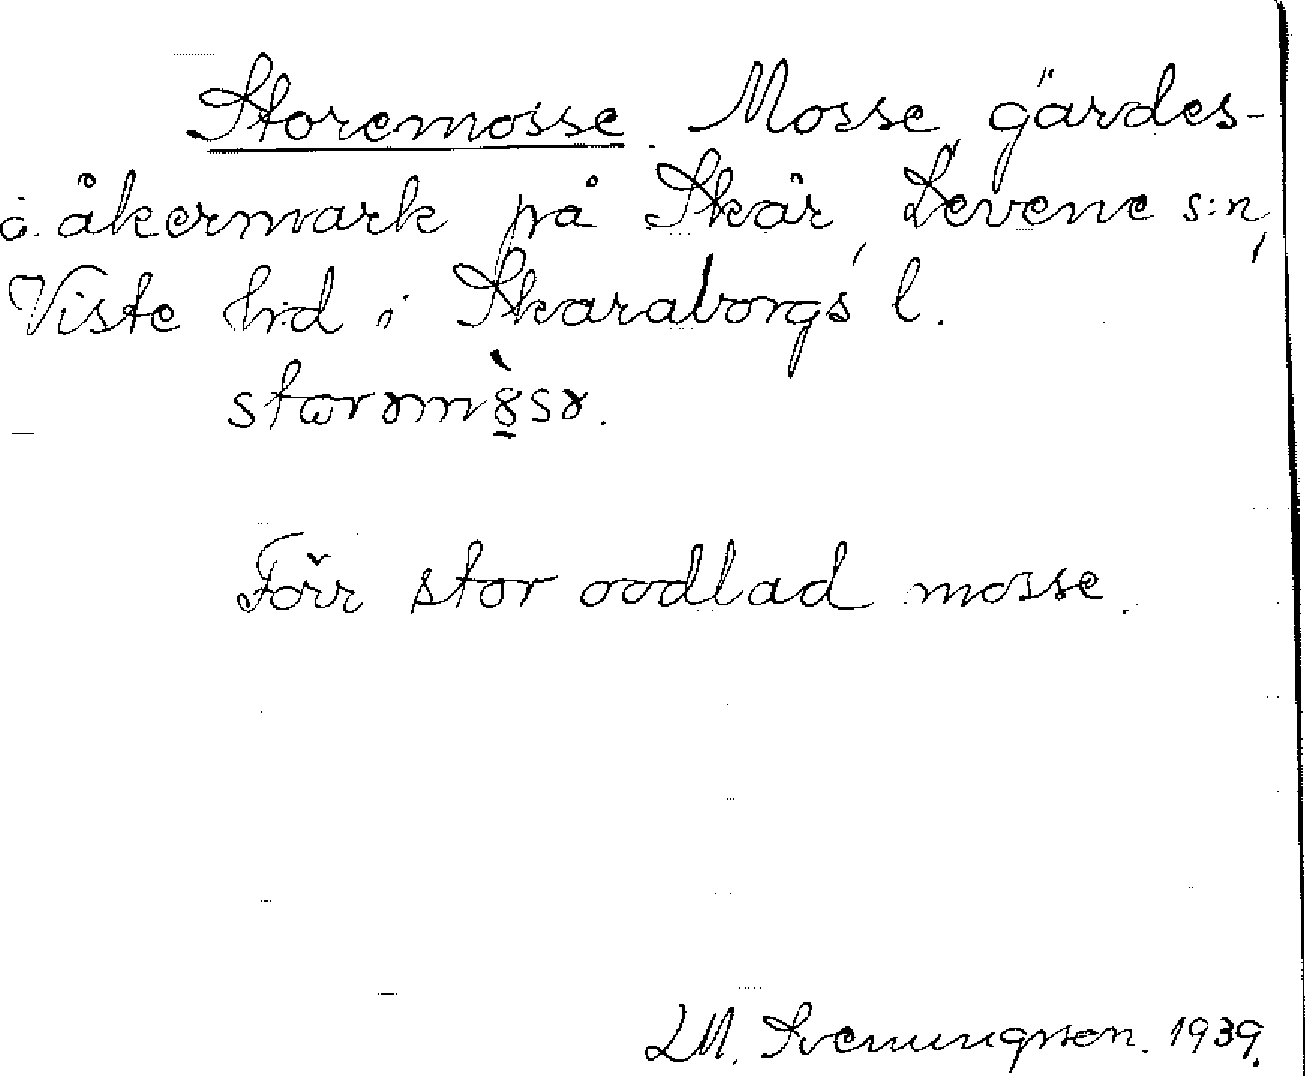 Storemosse. Mosse, gärdes-
å. åkermark på Skår, Levene s:n,
Viste hd i Skaraborgs l.
Förr stor oodlad mosse.
LM. Svenungsson. 1939.